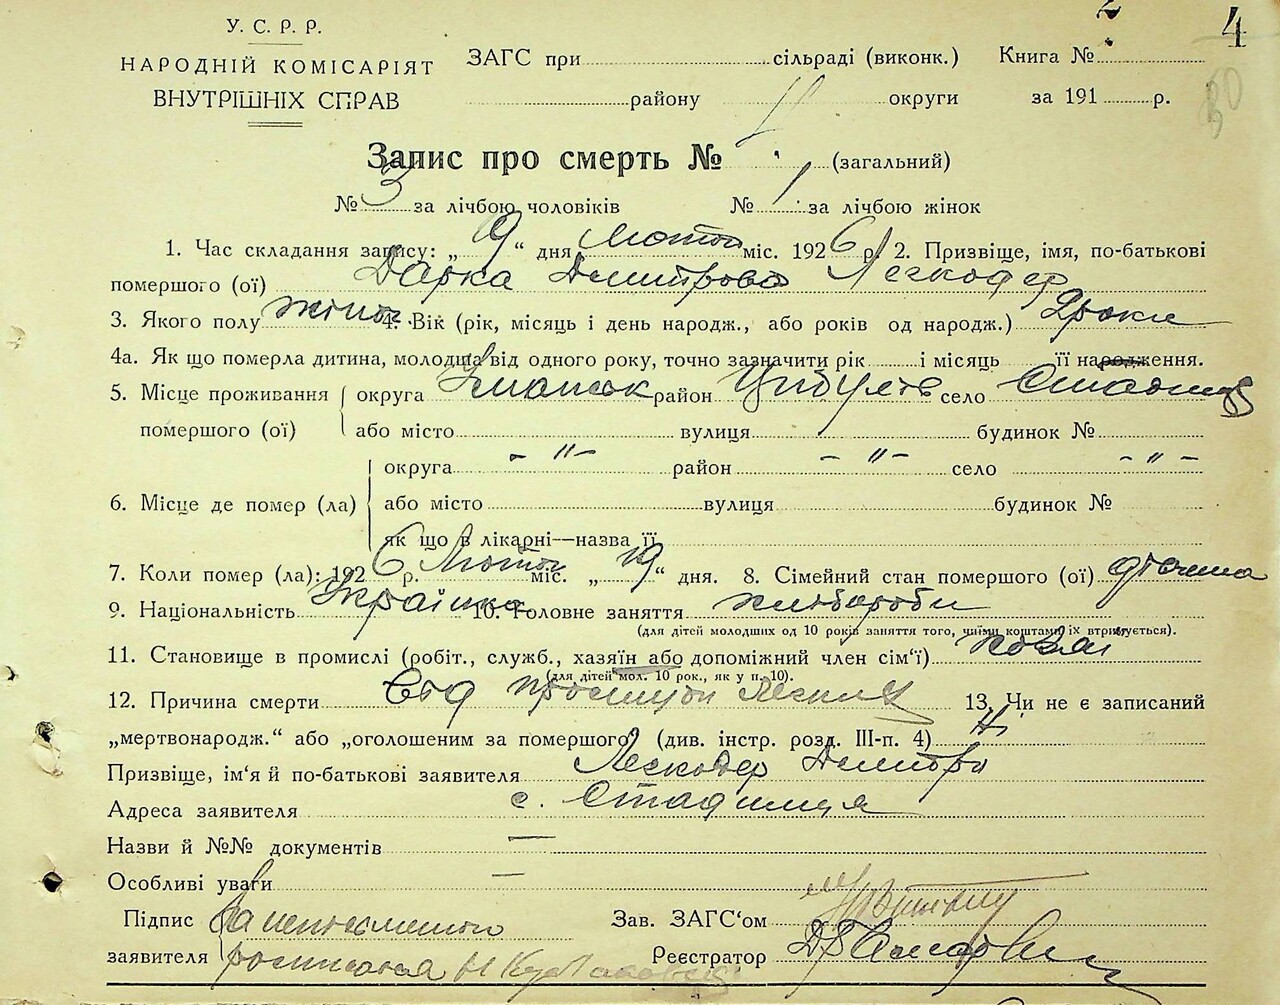 2
4
У. С. Р. Р.
НАРОДНІЙ КОМІСАРІЯТ
ВНУТРІШНІХ СПРАВ
ЗАГС при сільраді (виконк.) Книга №
району округи за 191 р.
Запис про смерть № 4 (загальний)
№ 3 за лічбою чоловіків № 1 за лічбою жінок
1. Час складання запису: „ 19 “ дня Лютого міс. 1926 р. 2. Призвіще, імя, по-батькові
помершого (ої) Дарка Дмитрова Лескодер
3. Якого полу жіноч. 4. Вік (рік, місяць і день народж., або років од народж.) 2 роки
4а. Як що померла дитина, молодша від одного року, точно зазначити рік і місяць її народження.
5. Місце проживання помершого (ої) округа Уманськ район Цибулів село Стадниця
або місто вулиця будинок №
6. Місце де помер (ла) округа - " - район - " - село - " -
або місто вулиця будинок №
як що в лікарні—назва її
7. Коли помер (ла): 1926 р. Лютого міс. „ 19 “ дня. 8. Сімейний стан помершого (ої) дитина
9. Національність Українка 10. Головне заняття хлібороби
(для дітей молодших од 10 років заняття того, чиїми коштами їх втримується).
11. Становище в промислі (робіт., служб., хазяїн або допоміжний член сім‘ї) хазяї
(для дітей мол. 10 рок., як у п. 10).
12. Причина смерти Від простуди 13. Чи не є записаний
„мертвонародж.“ або „оголошеним за помершого“ (див. інстр. розд. III-п. 4) Ні
Призвіще, ім‘я й по-батькові заявителя Лескодер Дмитро
Адреса заявителя с. Стадниця
Назви й №№ документів —
Особливі уваги —
Підпис заявителя За неписьменного
розписався
Зав. ЗАГС‘ом
Реєстратор